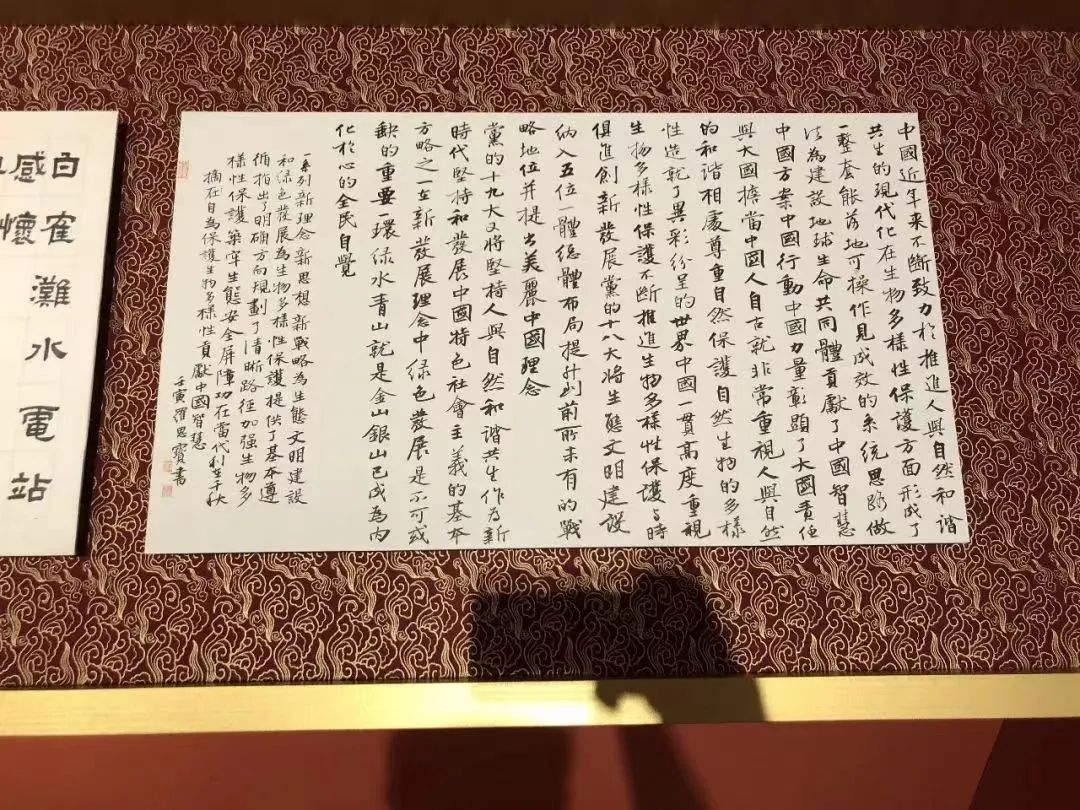 中國近年来不断致力於推進人與自然和谐
共生的现代化在生物多樣性保護方面形成了
一整套能落地可操作見成效的系统思路做
法為建設地球生命共同體貢獻了中國智慧
中國方案中國行動中國力量彰顯了大國責任
與大國擔當中國人自古就非常重視人與自然
的和谐相處尊重自然保護自然生物的多樣
性造就了異彩纷呈的世界中國一贯高度重視
生物多樣性保護不断推進生物多樣性保護与時
俱進創新發展黨的十八大將生態文明建设
纳入五位一體總體布局提升到前所未有的戰
略地位并提出美麗中國理念
黨的十九大又將堅持人與自然和谐共生作为新
時代堅持和發展中國特色社會主義的基本
方略之一在新發展理念中绿色發展是不可或
缺的重要一環绿水青山就是金山銀山已成为内
化於心的全民自覺
一系列新理念新思想新戰略為生態文明建設
和绿色發展為生物多樣性保護提供了基本遵
循指出了明确方向規劃了清晰路径加强生物多
樣性保護築牢生態安全屏障功在當代利在千秋
摘在自為保護生物多樣性貢獻中國智慧
壬寅羅思寶書
白雀灘水電站
感懷